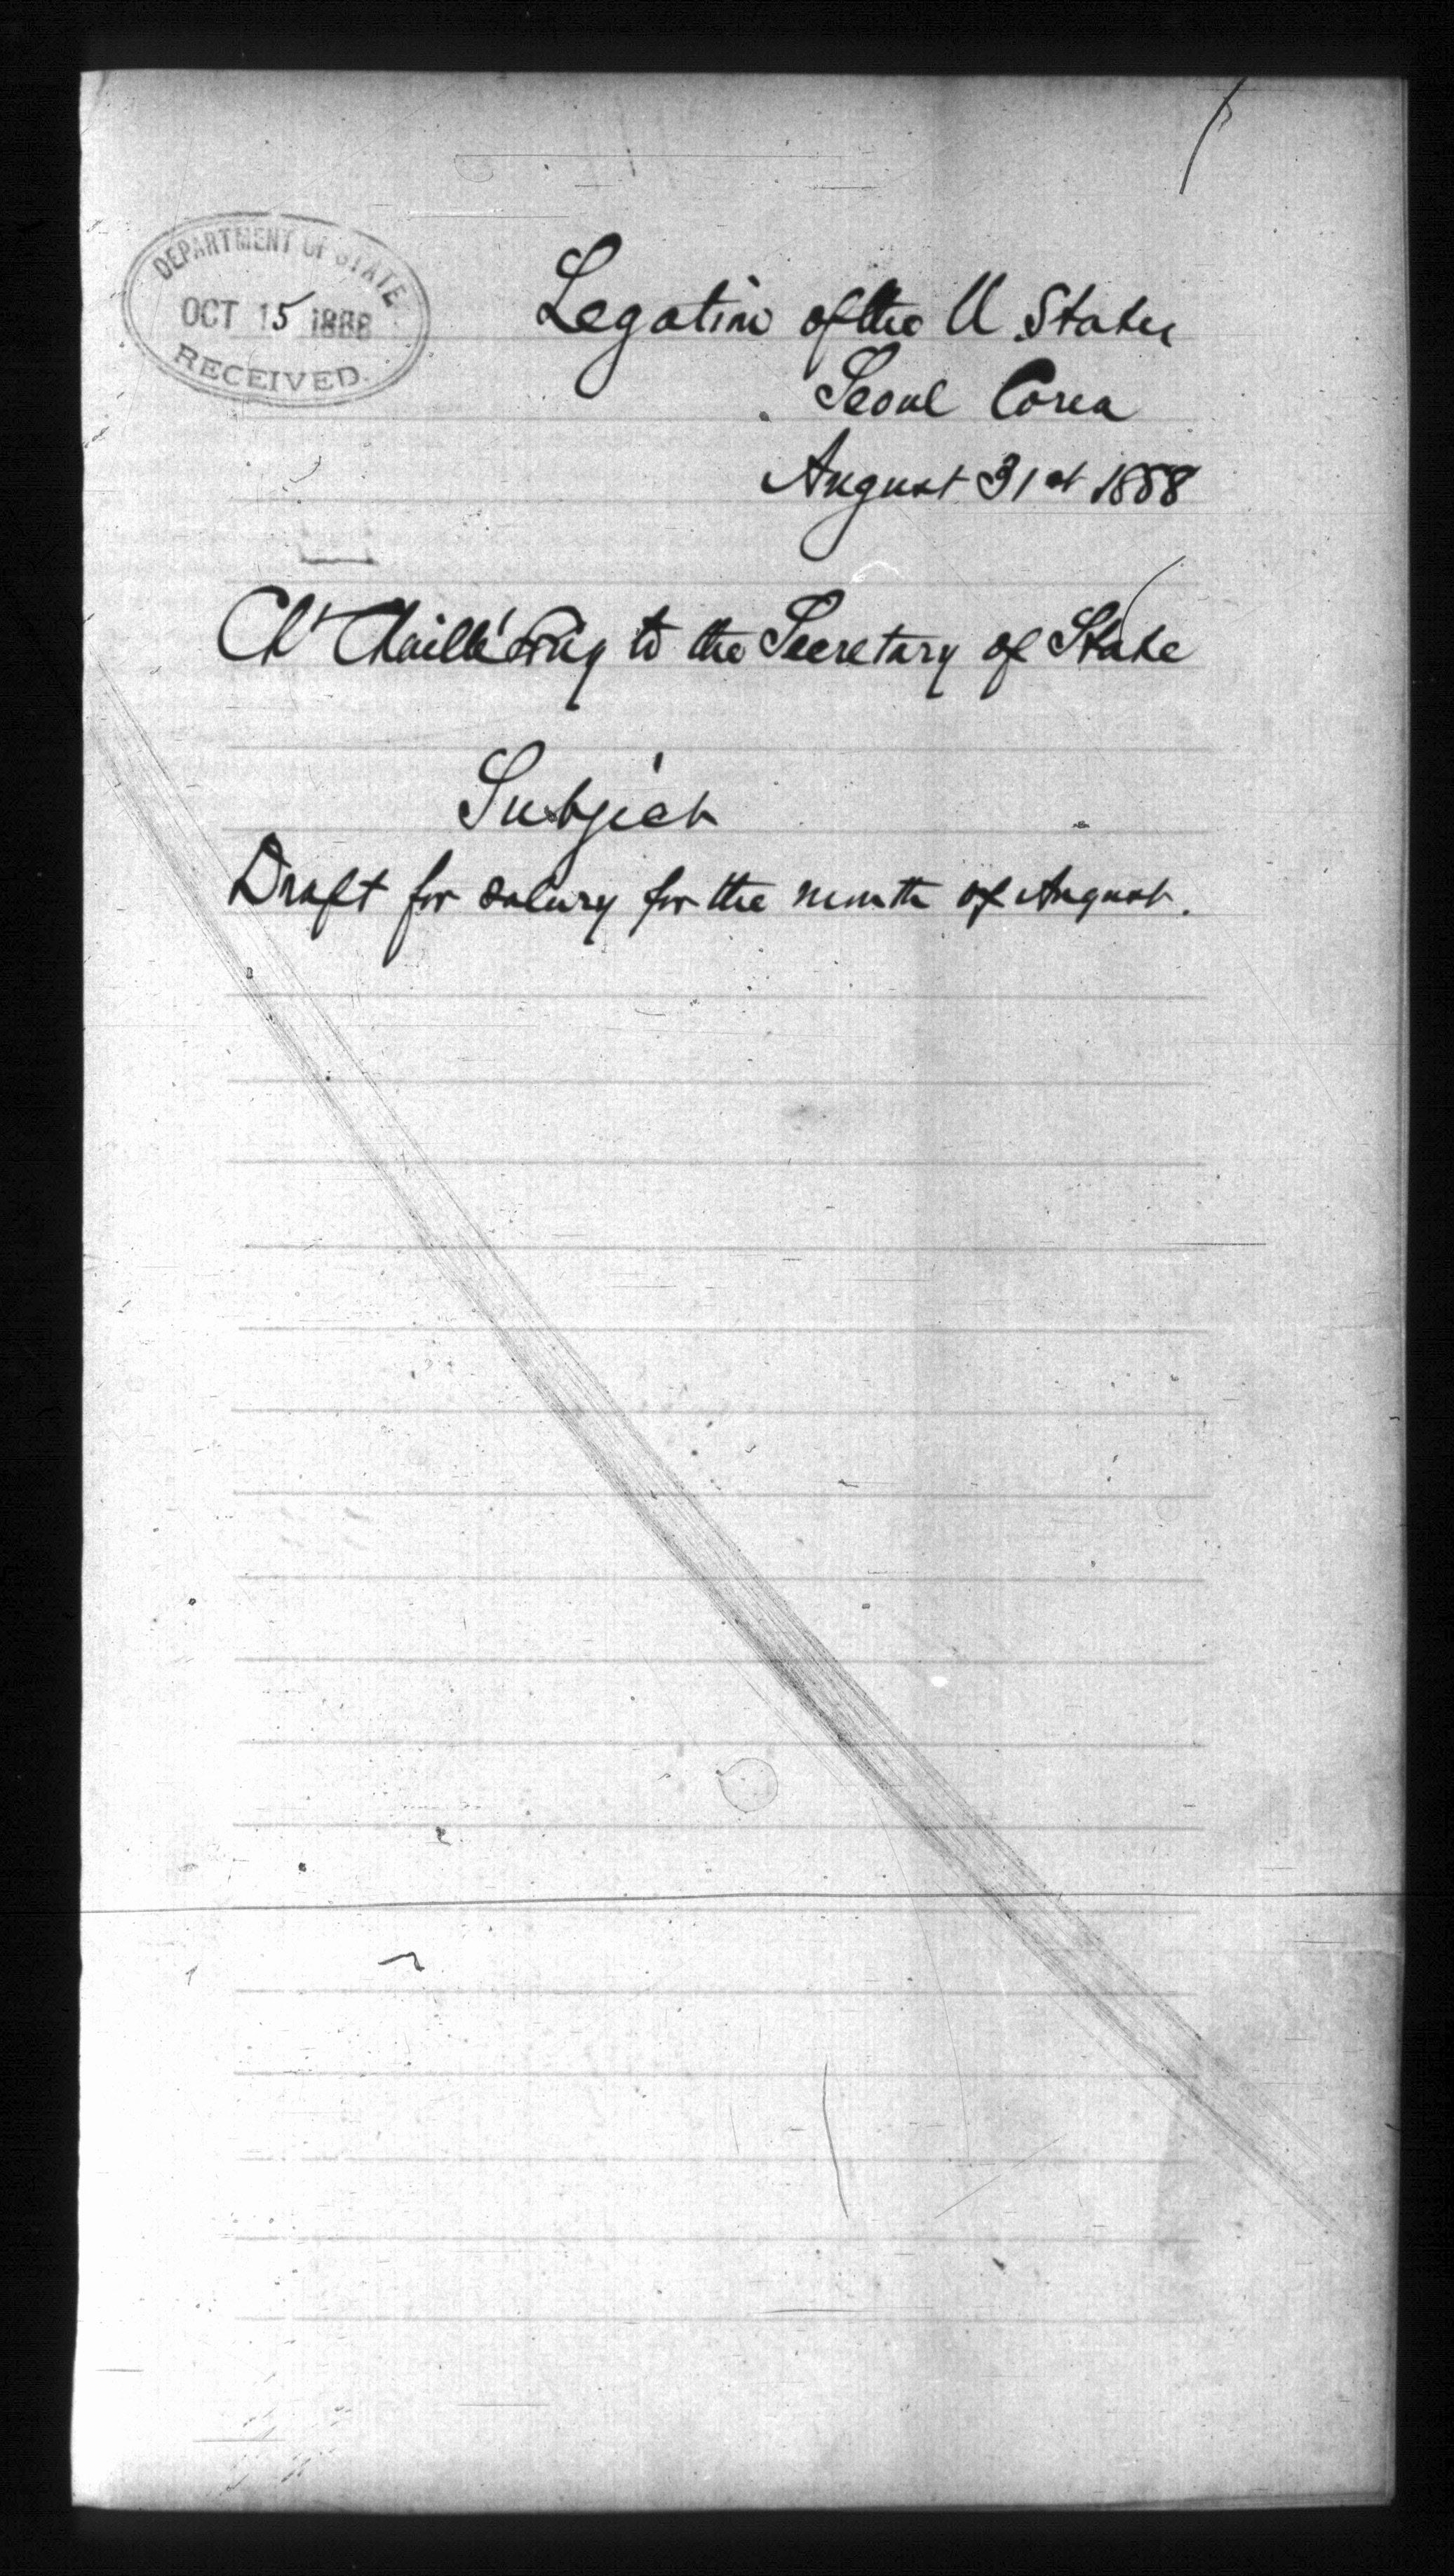 DEPARTMENT OF STATE
OCT 15 1888
RECEIVED.
Legation of the U. States
Seoul Corea
August 31st 1888
Ch. Chaillé Long to the Secretary of State
Subject
Draft for salary for the month of August.